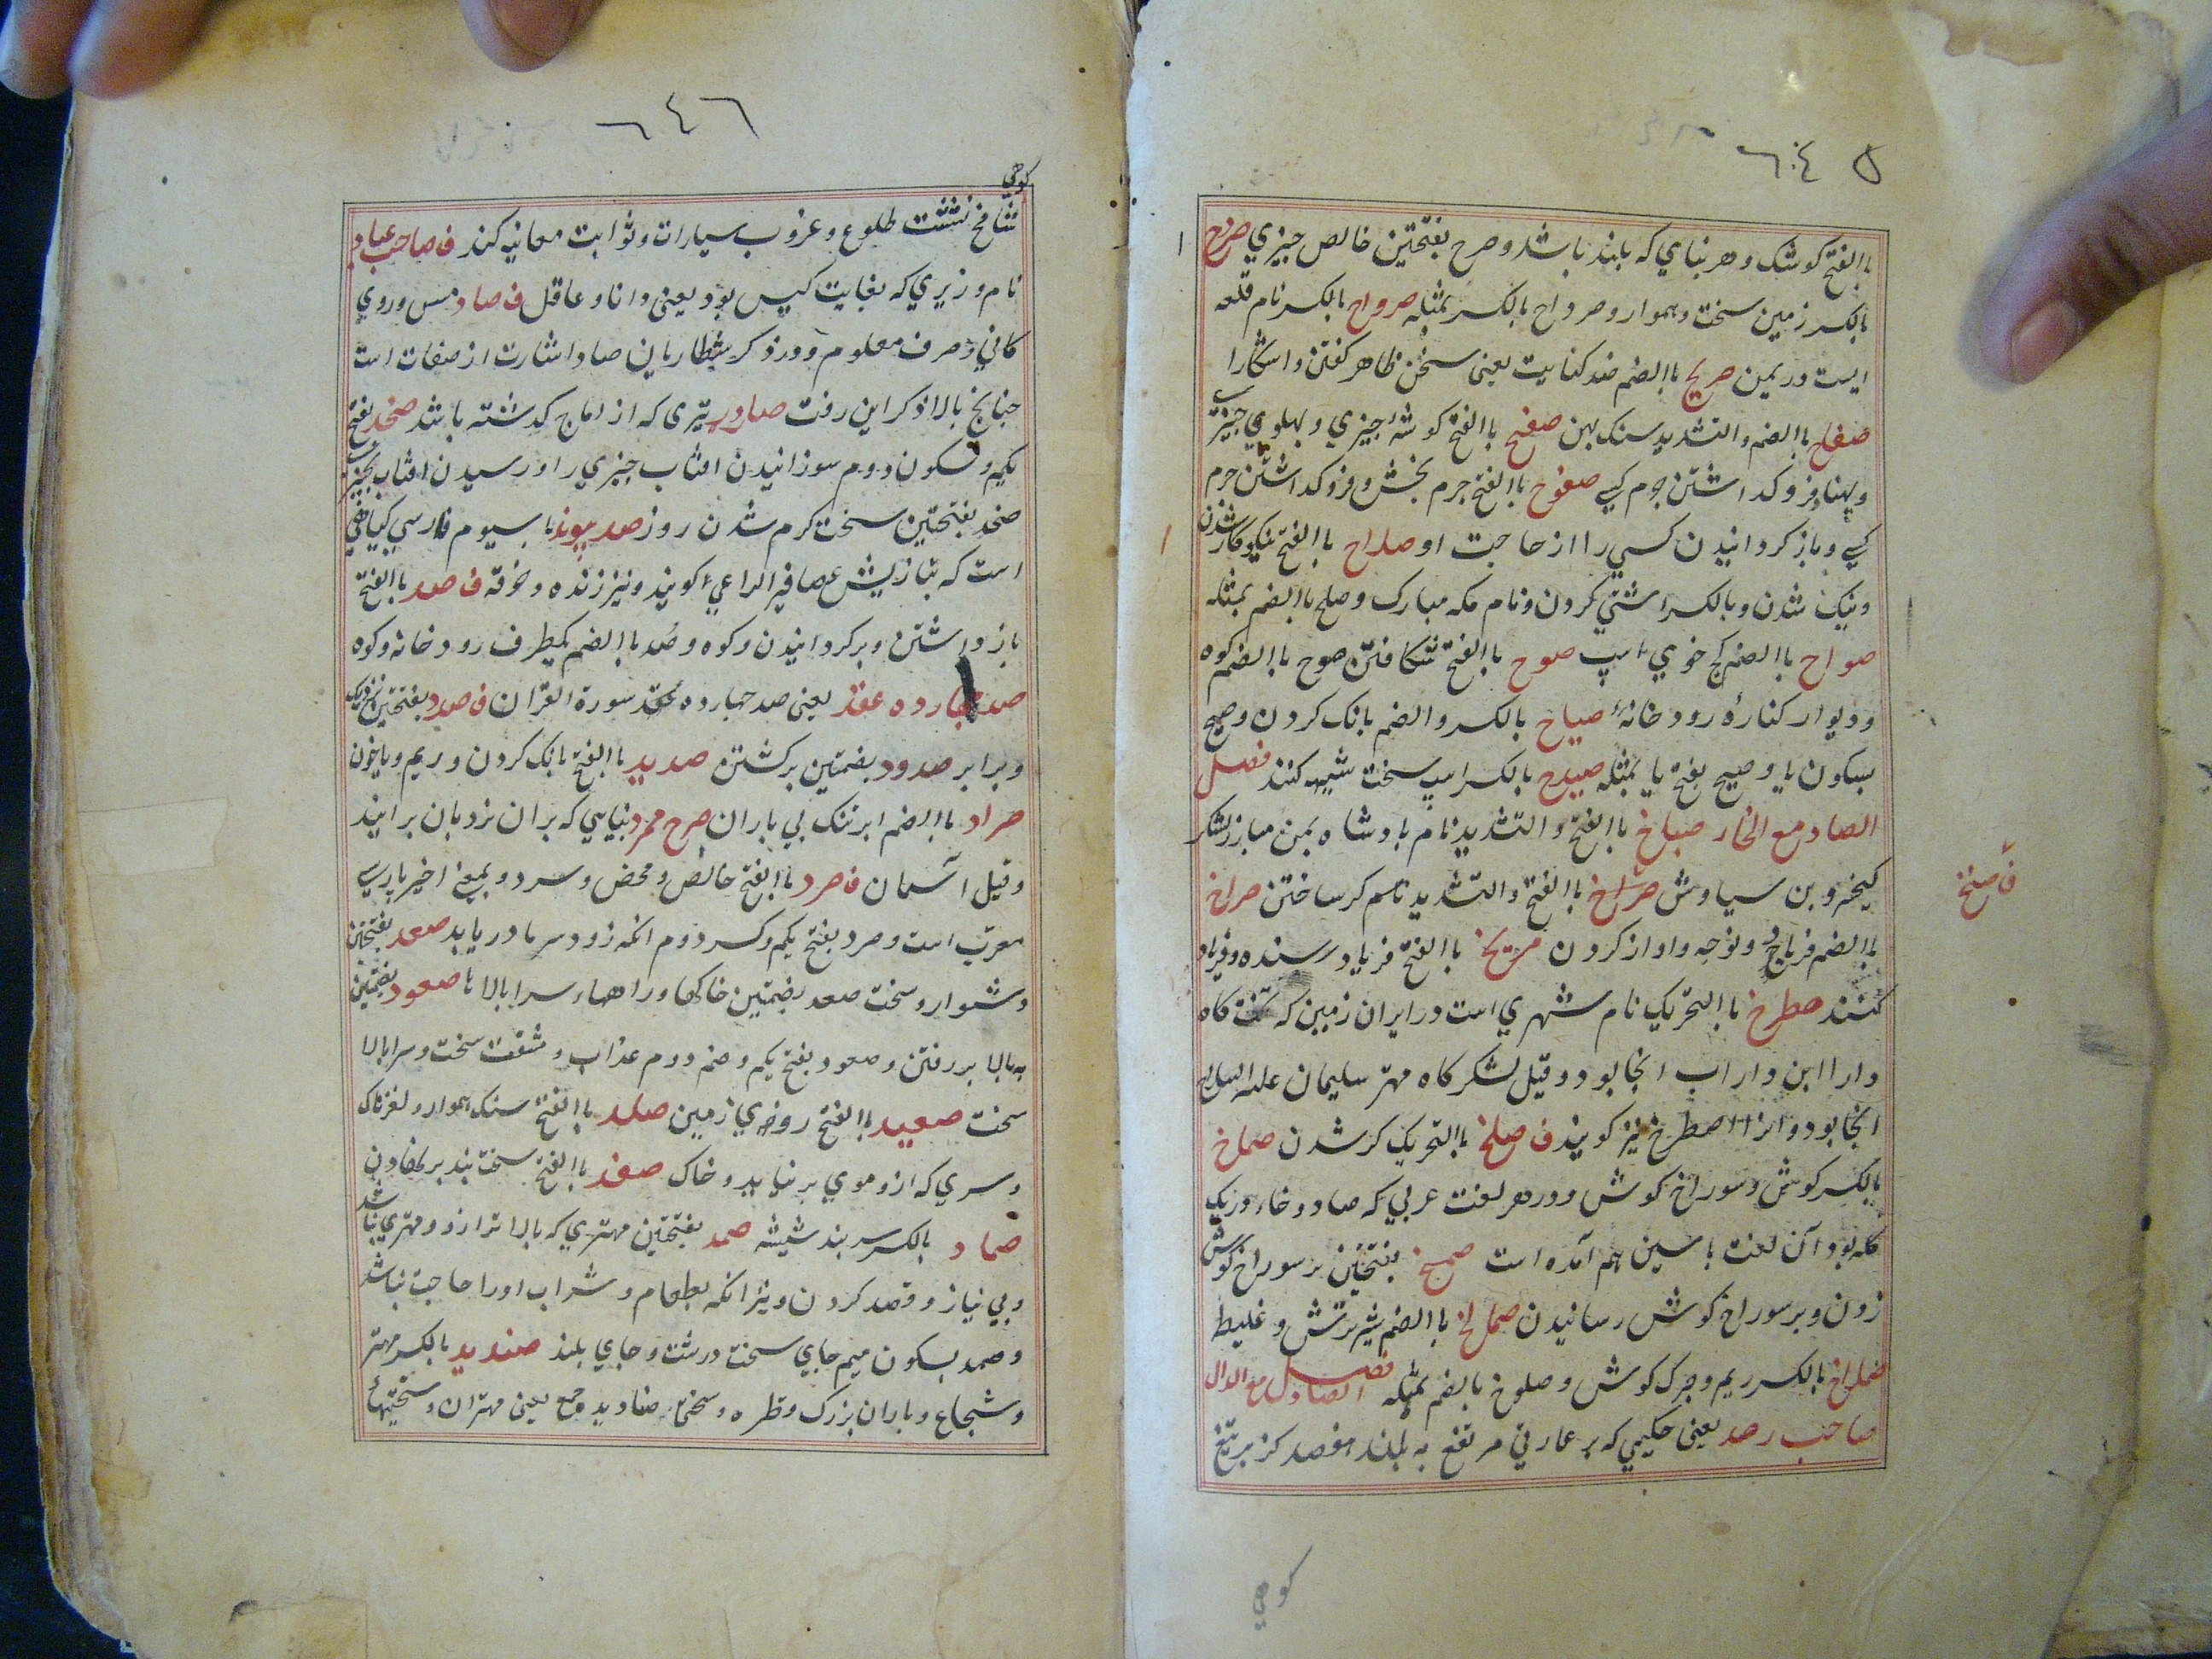 ٦٤٥
باالفتح کوشک و هر بنای که بلند باشد و صرح بفتحتین خالص چیزي صرح
بالکسر زمین سخت و هموار و صرواح بالکسر بمثله صرواح بالکسر نام قلعه
ایست در یمن صریح باالضم ضد کنایت یعنی سخن ظاهر کفتن و اشکارا
صفاح باالضم والتشدید سنک پهن صفح باالفتح کوشهٔ چیزي و پهلوي چیزي
و پهنا و فرو کداشتن جرم کسی صفوح باالفتح جرم بخش و فرو کداشتن جرم
کسی و باز کردانیدن کسی را از حاجت او صلاح باالفتح نیکوکار شدن
و نیک شدن و بالکسر اشتي کردن و نام مکه مبارک و صلح باالضم بمثله
صواح باالضم کج خوي اسپ صوح باالفتح شکافتن صوح باالضم کوه
و دیوار کنارهٔ رودخانه صیاح بالکسر و الضم بانک کردن و صیح
بسکون یا و صیح بفتح یا بمثله صیدح بالکسر اسپ سخت شیهه کنند فصل
الصاد مع الخاء صباخ باالفتح و التشدید نام پادشاه یمن مبارز لشکر
کیخسرو بن سیاوش صراخ باالفتح والتشدید نام کر ساختن صراخ
باالضم فریاد و نوحه و اواز کردن صریخ باالفتح فریاد رسنده و فریاد
کنند صطرخ باالتحریک نام شهري است در ایران زمین که تخت کاه
دارا ابن داراب انجا بود و قیل لشکر کاه مهتر سلیمان علیه السلام
انجا بود و انرا اصطرخ نیز کویند ف صلخ باالتحریک کر شدن صماخ
بالکسر کوش و سوراخ کوش و در هر لغت عربي که صاد و خاء در یک
کلمه بود آن لغت با سین هم آمده است صمخ بفتحتین بر سوراخ کوش
زدن و بر سوراخ کوش رسانیدن صملاخ باالضم شیر ترش و غلیظ
صملاخ بالکسر ریم و چرک کوش و صملوخ بالضم بمثله فصل الصاد مع الدال
صاحب رصد یعنی حکیمي که بر عمارتي مرتفع به بلندا
ف صلخ
کو
٦٤٦
کوهي
شامخ نشست طلوع و غروب سیارات و ثوابت معاینه کند ف صاحب عباد
نام وزیري که بغایت کیس بود یعنی دانا و عاقل ف صاد مس و روي
کاني و حرف معلوم و در ذکر شطاریان صاد اشارت از صفات است
چنانچ بالا ذکر این رفت صادر تیري که از اماج کدشته باشد صخد بفتح
یکم و سکون دوم سوزانیدن افتاب چیزي را و رسیدن افتاب بچیزي
صخد بفتحتین سخت کرم شدن روز صد پیوند با سیوم فارسي کیاهي
است که بتازیش عصا فیر الراعي کویند و نیز ژنده و خرقه ف صدد باالفتح
باز داشتن و بر کردانیدن و کوه و صد باالضم یکطرف رودخانه و کوه
صد چهارده عقد یعنی صد چهارده عقد سورة القران ف صدد بفتحتین نزدیک
و برابر صدود بضمتین برکشتن صدید باالفتح بانک کردن و ریم و با خون
صراد باالضم ابر تنک بي باران صرح ممرد بنایي که بران نردبان برایند
و قیل آسمان ف صرد باالفتح خالص و محض و سرد و بمعنی اخیر پارسي
معرب است و صرد بفتح یکم و کسر دوم انکه زود سرما دریابد صعد بفتحتین
دشوار و سخت صعد بضمتین خاکها و راهها سرا بالا ها صعود بضمتین
به بالا بر رفتن و صعود بفتح یکم و ضم دوم عذاب و مشقت سخت و سرا بالا
سخت صعید باالفتح روي زمین صلد باالفتح سنک هموار و لغزناک
و سري که ازو موي بر نیاید و خاک صفد باالفتح سخت بند بر نهادن
صماد بالکسر سربند شیشه صمد بفتحتین مهتري که بالاتر ازو مهتري نباشد
و بي نیاز و قصد کردن و نیز انکه بطعام و شراب اورا حاجت نباشد
و صمد بسکون میم جاي سخت درشت و جاي بلند صندید بالکسر مهتر
و شجاع و باران بزرک قطره و سختي صنادید جمع یعنی مهتران و سختیهاء